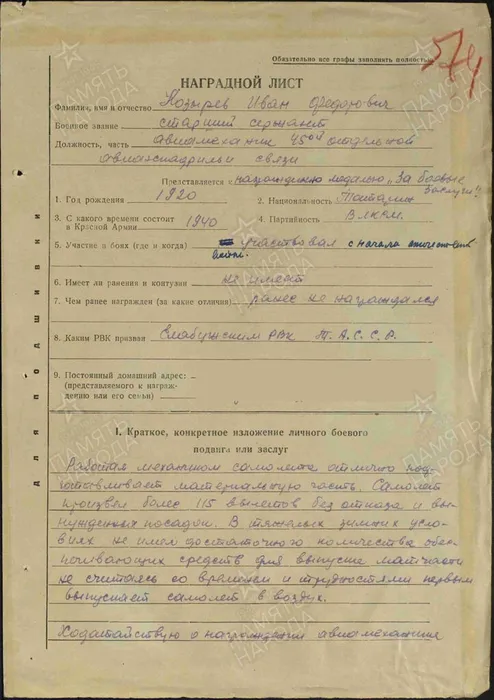 Обязательно все графы заполнять полностью
574
НАГРАДНОЙ ЛИСТ
Фамилия, имя и отчество Козырев Иван Федорович
Боевое звание старший сержант
Должность, часть авиамеханик 45ой отдельной
авиаэскадрильи связи
Представляется к награждению медалью „За боевые
заслуги"
1. Год рождения 1920 2. Национальность Татарин
3. С какого времени состоит в Красной Армии 1940 4. Партийность ВЛКСМ.
5. Участие в боях (где и когда) участвовал с начала отечеств.
войны.
6. Имеет ли ранения и контузии не имеет
7. Чем ранее награжден (за какие отличия) ранее не награждался
8. Каким РВК призван Елабужским РВК Т.А.С.С.Р.
9. Постоянный домашний адрес:
(представляемого к награж-
дению или его семьи)
для подшивки
I. Краткое, конкретное изложение личного боевого
подвига или заслуг
Работая механиком самолета отлично под-
готовливает материальную часть. Самолет
произвел более 115 вылетов без отказа и вы-
нужденных посадок. В тяжелых зимних усло-
виях не имея достаточного количества обес-
печивающих средств для выпуска матчасти
не считаясь со временем и трудностями первым
выпускает самолет в воздух.
Ходатайствую о награждении авиамеханика
ПАМЯТЬ НАРОДА